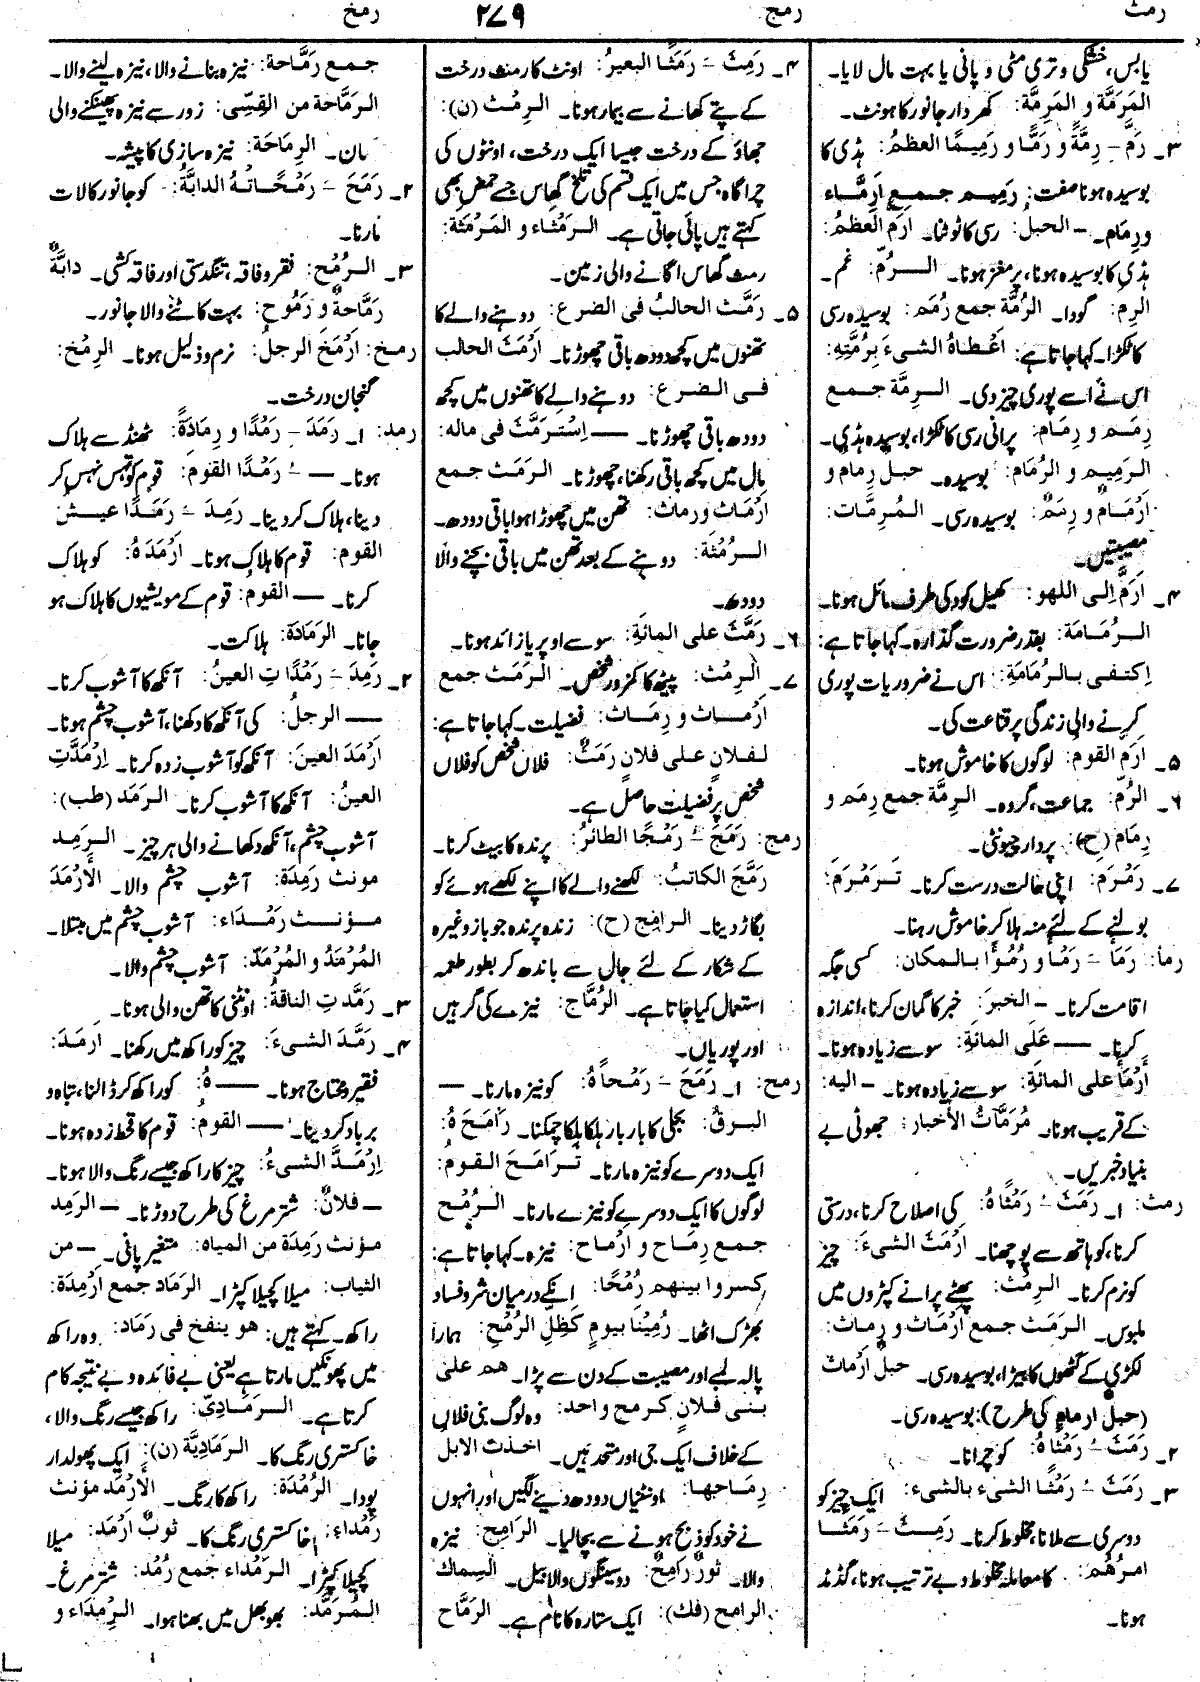 رمث
رمج
۲۷۹
رمخ
یابس، خشکی و تری مٹی و پانی یا بہت مال لایا۔
المَرَمَّة و المَرِمَّة: کھر دار جانور کا ہونٹ۔
۳۔ رَمَّ – رِمَّةً و رَمًّا و رَمِیمًا العظمُ: ہڈی کا
بوسیدہ ہونا صفت: رَمِیم جمع اَرِمَّاء
و رِمام۔ – الحبل: رسی کا ٹوٹنا۔ ارَمّ العظمُ:
ہڈی کا بوسیدہ ہونا، پر مغز ہونا۔ الرُّمّ: غم۔
الرِم: گودا۔ الرُمَّة جمع رُمَم: بوسیدہ رسی
کا ٹکڑا۔ کہا جاتا ہے: اَعْطَاهُ الشیءَ بِرُمَّتِهِ:
اس نے اسے پوری چیز دی۔ الرِمَّة جمع
رِمَم و رِمام: پرانی رسی کا ٹکڑا، بوسیدہ ہڈی۔
الرَمِیم و الرُمَام: بوسیدہ۔ حبل رِمام و
اَرْمَامٌ و رِمَمٌ: بوسیدہ رسی۔ المُرِمَّات:
مصیبتیں۔
۴۔ اَرَمَّ اِلی اللهو: کھیل کود کی طرف مائل ہونا۔
الرُمَامَة: بقدر ضرورت گذارہ۔ کہا جاتا ہے:
اِکتفی بالرُمَامَةِ: اس نے ضروریات پوری
کرنے والی زندگی پر قناعت کی۔
۵۔ اَرَمّ القوم: لوگوں کا خاموش ہونا۔
۶۔ الرُمّ: جماعت، گروہ۔ الرِمَّة جمع رِمَم و
رِمَام (ح): پردار چیونٹی۔
۷۔ رَمْرَم: اپنی حالت درست کرنا۔ تَرَمْرَم:
بولنے کے لئے منہ ہلا کر خاموش رہنا۔
رما: رَمَا – رَمْا و رُمُوْا بالمکان: کسی جگہ
اقامت کرنا۔ – الخبرَ: خبر کا گمان کرنا، اندازہ
کرنا۔ — عَلَی المائةِ: سو سے زیادہ ہونا۔
أَرْمَأ علی المائةِ: سو سے زیادہ ہونا۔ – الیه:
کے قریب ہونا۔ مُرَمَّاتُ الأخبار: جھوٹی بے
بنیاد خبریں۔
رمث: ۱۔ رَمَثَ – رَمْثًا هُ: کی اصلاح کرنا، درستی
کرنا، کو ہاتھ سے پوچھنا۔ اَرْمَثَ الشیءَ: چیز
کو نرم کرنا۔ الرِمْث: پھٹے پرانے کپڑوں میں
ملبوس۔ الرَمَث جمع اَرْمَاث و رِماث:
لکڑی کے گٹھوں کا بیڑا، بوسیدہ رسی۔ حبلٌ اَرْماث
(حبل ارمام کی طرح): بوسیدہ رسی۔
۲۔ رَمَثَ – رَمْثًا هُ: کو چرانا۔
۳۔ رَمَثَ – رَمْثًا الشیء بالشیء: ایک چیز کو
دوسری سے ملانا، مخلوط کرنا۔ رَمِثَ – رَمَثًا
امرُهُم: کا معاملہ مخلوط و بے ترتیب ہونا، گڈمڈ
ہونا۔
۴۔ رَمِثَ – رَمَثًا البعیرُ: اونٹ کا رمث درخت
کے پتے کھانے سے بیمار ہونا۔ الرِمْث (ن):
جھاؤ کے درخت جیسا ایک درخت، اونٹوں کی
چراگاہ جس میں ایک قسم کی تلخ گھاس جسے حمض بھی
کہتے ہیں پائی جاتی ہے۔ الرَمْثاء و المَرْمَثَة:
رمث گھاس اگانے والی زمین۔
۵۔ رَمَّث الحالبُ فی الضرع: دوہنے والے کا
تھنوں میں کچھ دودھ باقی چھوڑنا۔ اَرْمَث الحالب
فی الضرع: دوہنے والے کا تھنوں میں کچھ
دودھ باقی چھوڑنا۔ — اِسْتَرمَثَ فی ماله:
مال میں کچھ باقی رکھنا، چھوڑنا۔ الرَمَث جمع
اَرْمَاث و رماث: تھن میں چھوڑا ہوا باقی دودھ۔
الرُمْثَة: دوہنے کے بعد تھن میں باقی بچنے والا
دودھ۔
۶۔ رَمَّثَ علی المائةِ: سو سے اوپر یا زائد ہونا۔
۷۔ الرِمْث: پیٹھ کا کمزور شخص۔ الرَمَث جمع
اَرْماث و رِماث: فضیلت۔ کہا جاتا ہے:
لفلانٍ علی فلانٍ رَمَثٌ: فلاں شخص کو فلاں
شخص پر فضیلت حاصل ہے۔
رمج: رَمَجَ – رَمْجًا الطائرُ: پرندہ کا بیٹ کرنا۔
رَمَّجَ الکاتبُ: لکھنے والے کا اپنے لکھے ہوئے کو
بگاڑ دینا۔ الرامِج (ح): زندہ پرندہ جو باز وغیرہ
کے شکار کے لئے جال سے باندھ کر بطور طعمہ
استعمال کیا جاتا ہے۔ الرُمَّاج: نیزے کی گرہیں
اور پوریاں۔
رمح: ۱۔ رَمَحَ – رَمْحاً هُ: کو نیزہ مارنا۔ —
البرقُ: بجلی کا بار بار ہلکا ہلکا چمکنا۔ رَامَحَ هُ:
ایک دوسرے کو نیزہ مارنا۔ تَرَامَحَ القومُ:
لوگوں کا ایک دوسرے کو نیزے مارنا۔ الرُمْح
جمع رِمَاح و اَرْمَاح: نیزہ۔ کہا جاتا ہے:
کسروا بینهم رُمْحًا: انکے درمیان شر و فساد
بھڑک اٹھا۔ رُمِیْنَا بیومٍ کَظِلِّ الرُمْحِ: ہمارا
پالہ لمبے اور مصیبت کے دن سے پڑا۔ هم علی
بنی فلان کرمح واحد: وہ لوگ بنی فلاں
کے خلاف ایک جی اور متحد ہیں۔ اخذت الابل
رِماحها: اونٹنیاں دودھ دینے لگیں اور انہوں
نے خود کو ذبح ہونے سے بچا لیا۔ الرَامِح: نیزہ
والا۔ ثورٌ رَامِحٌ: دو سینگوں والا بیل۔ السِماك
الرامح (فك): ایک ستارہ کا نام ہے۔ الرَمَّاح
جمع رَمَّاحة: نیزہ بنانے والا، نیزہ لینے والا۔
الرَمَّاحة من القِسِّی: زور سے نیزہ پھینکنے والی
مان۔ الرِمَاحَة: نیزہ سازی کا پیشہ۔
۲۔ رَمَحَ – رَمْحًا تْهُ الدابةُ: کو جانور کا لات
مارنا۔
۳۔ الرُمْح: فقر و فاقہ، تنگدستی اور فاقہ کشی۔ دابةٌ
رَمَّاحةٌ و رَمُوح: بہت کاٹنے والا جانور۔
رمخ: اَرْمَخَ الرجلُ: نرم و ذلیل ہونا۔ الرِمْخ:
گنجان درخت۔
رمد: ۱۔ رَمَدَ – رَمْدًا و رِمادَةً: ٹھنڈ سے ہلاک
ہونا۔ — – رَمْدًا القومَ: قوم کو تہس نہس کر
دینا، ہلاک کر دینا۔ رَمِدَ – رَمَدًا عیش
القوم: قوم کا ہلاک ہونا۔ اَرْمَدَ هُ: کو ہلاک
کرنا۔ — القومُ: قوم کے مویشیوں کا ہلاک ہو
جانا۔ الرَمَادَة: ہلاکت۔
۲۔ رَمِدَ – رَمَدًا تِ العینُ: آنکھ کا آشوب کرنا۔
— الرجلُ: کی آنکھ کا دکھنا، آشوب چشم ہونا۔
اَرْمَدَ العینَ: آنکھ کو آشوب زدہ کرنا۔ اِرْمَدَّتِ
العینُ: آنکھ کا آشوب کرنا۔ الرمَد (طب):
آشوب چشم، آنکھ دکھانے والی ہر چیز۔ الرَمِد
مونث رَمِدَة: آشوب چشم والا۔ الأَرْمَد
مؤنث رَمْدَاء: آشوب چشم میں مبتلا۔
المُرْمَدُ و المُرْمَدّ: آشوب چشم والا۔
۳۔ رَمَّدتِ الناقةُ: اونٹنی کا تھن والی ہونا۔
۴۔ رَمَّدَ الشیءَ: چیز کو راکھ میں رکھنا۔ اَرمَدَ:
فقیر و محتاج ہونا۔ — هُ: کو راکھ کر ڈالنا، تباہ و
برباد کر دینا۔ — القومُ: قوم کا قحط زدہ ہونا۔
اِرْمَدَّ الشیءُ: چیز کا راکھ جیسے رنگ والا ہونا۔
– فلانٌ: شتر مرغ کی طرح دوڑنا۔ – الرَمِد
مؤنث رَمِدَة من المیاه: متغیر پانی۔ – من
الثیاب: میلا کچیلا کپڑا۔ الرَماد جمع اَرْمِدَة:
راکھ۔ کہتے ہیں: هو ینفخ فی رَمَاد: وہ راکھ
میں پھونکیں مارتا ہے یعنی بے فائدہ و بے نتیجہ کام
کرتا ہے۔ الرَمَادِیّ: راکھ جیسے رنگ والا،
خاکستری رنگ کا۔ الرَمَادِیَّة (ن): ایک پھولدار
پودا۔ الرُمْدَة: راکھ کا رنگ۔ الأَرْمَد مؤنث
رَمْداء: خاکستری رنگ کا۔ ثوبٌ اَرْمَد: میلا
کچیلا کپڑا۔ الرَمْداء جمع رُمْد: شتر مرغ۔
المُرَمَّد: بھوبھل میں بھنا ہوا۔ الرِمْدَاء و